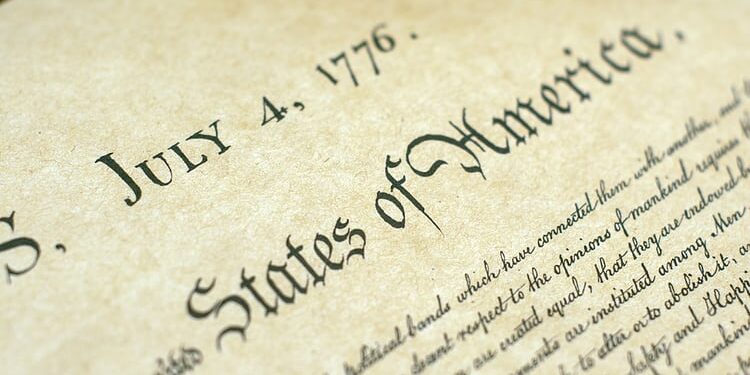 S, JULY 4, 1776.
States of America.
political bands which have connected them with another, and
decent respect to the opinions of mankind requires
are created equal, that they are endowed
are instituted among Men
to alter or to abolish it,
Safety and
mankind